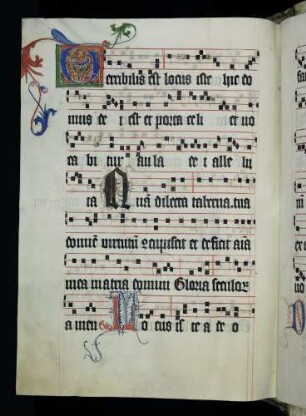 Terribilis est locus iste hic do
mus de i est et porta celi et uo
ca bi tur aula de i alle lu
ia Quā dilecta taberna. tua
domīe virtutū ꝯcupiscit et deficit aīa
mea in atria domini Gloria seculoꝝ
amen Locus is te a de o